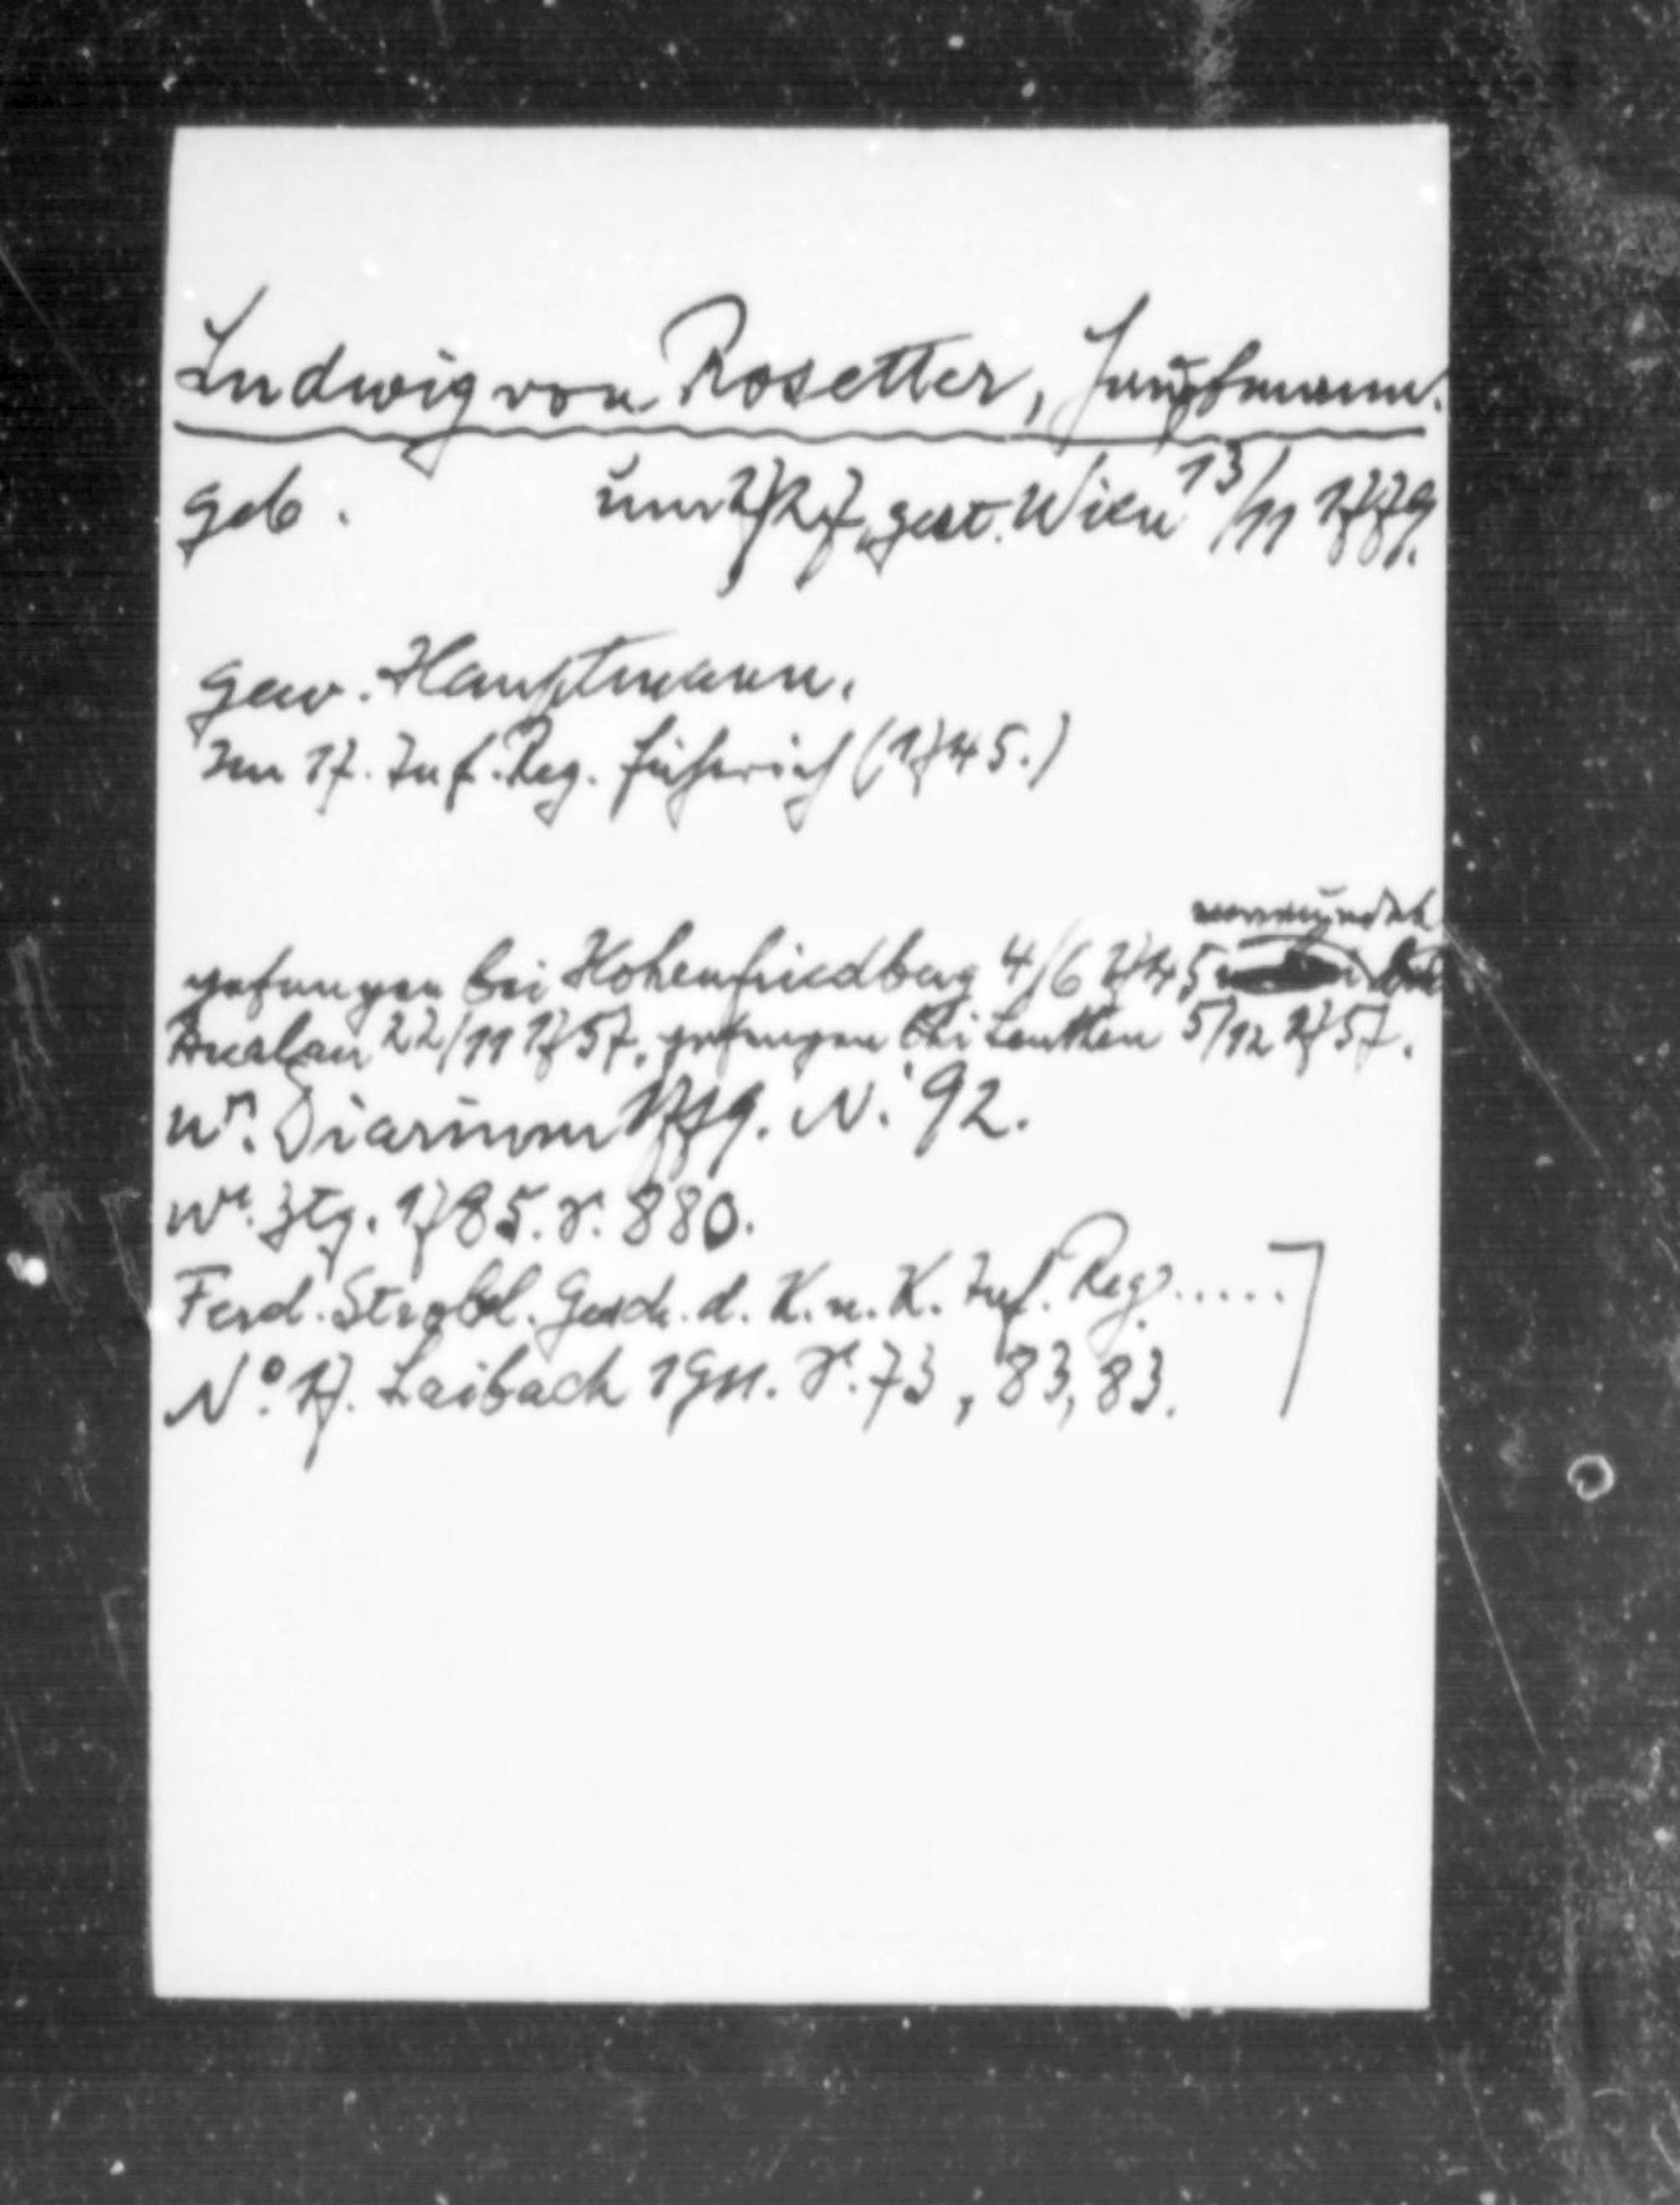 Ludwig von Rosetter, Hauptmann.
geb. um 1727, gest. Wien 13/11 1779.
gew. Hauptmann.
Im 17. Inf. Reg. Fähnrich (1745.)
verwundet
gefangen bei Hohenfriedberg 4/6 1745 bei
Breslau 22/11 1757, gefangen bei Leuthen 5/12 1757.
Wr. Diarium 1779. N. 92.
Wr. Ztg. 1785. S. 880.
Ferd. Strobl. Gesch. d. K. u. K. Inf. Reg. .....
No. 17. Laibach 1911. S. 73, 83, 83.